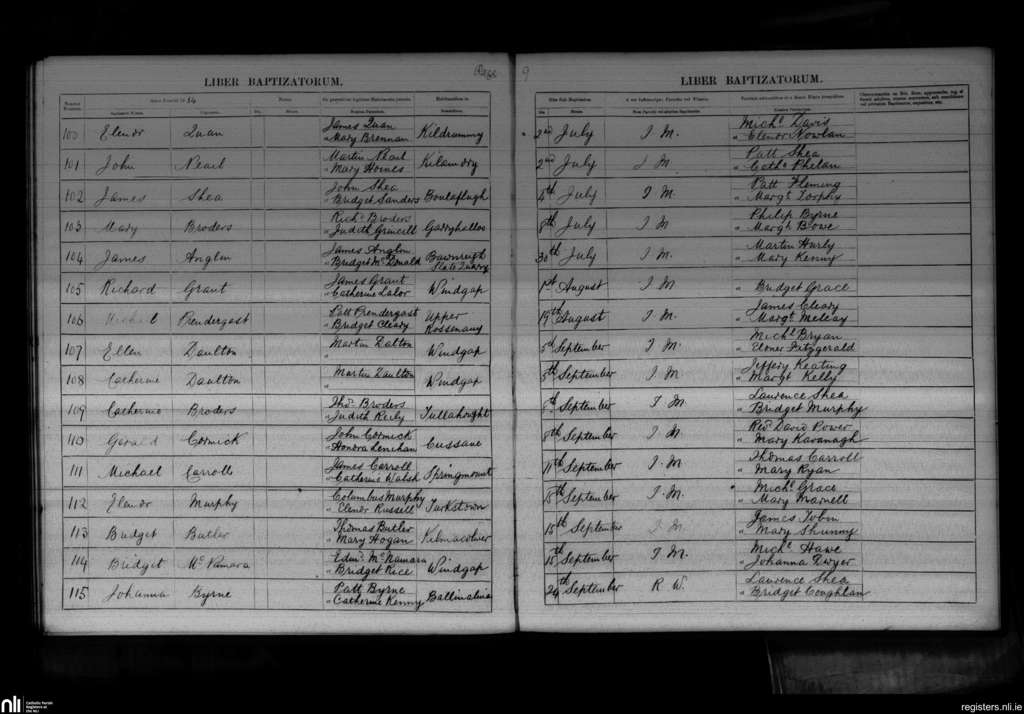 Page 9
LIBER BAPTIZATORUM. LIBER BAPTIZATORUM.
100 Elenor Quan James Quan Kildrummy 2nd July J. M. Michl. Davis
" Mary Brennan " Elenor Nowlan
101 John Nearl Martin Nearl Kilamory 2nd July J M. Patt Shea
" Mary Homes " Cathe. Phelan
102 James Shea John Shea 4th July J M. Patt Fleming
" Bridget Sanders " Margt. Torphy
103 Mary Broders Richd. Broders 8th July J M Philip Byrne
" Judith " Margt. Bowe
104 James Anglin James Anglin 30th July J M. Martin Hurly
" Bridget Mc Donald Slate Quarry " Mary Kenny
105 Richard Grant James Grant Windgap 1st August J M
" Catherine Lalor " Bridget Grace
106 Michael Prendergast Patt Prendergast Upper 19th August J. M. James Cleary
" Bridget Cleary Rossenany " Margt.
107 Ellen Daulton Martin Dalton Windgap 5th September J M Michl. Bryan
" " Elenor Fitzgerald
108 Catherine Daulton Martin Daulton Windgap 5th September J M Jeffery Keating
" " Margt Kelly
109 Catherine Broders Thos. Broders Tullahought September J M. Laurence Shea
" Judith Reily " Bridget Murphy
110 Gerald Cormick John Cormick Cussane 8th September J M. Revd. David Power
" Honora Lenihan " Mary Kavanagh
111 Michael Carroll James Carroll Springmount 11th September J. M Thomas Carroll
" Catherine Walsh " Mary Ryan
112 Elenor Murphy Columbus Murphy Turkstown 15th September J M. Michl. Grace
" Elenor Russell " Mary Marnell
113 Bridget Butler Thomas Butler Kilmacoliver 15th September J M. James Tobin
" Mary Hogan " Mary
114 Bridget Mc Namara Edmd. Mc Namara Windgap 15th September J M. Michl. Hawe
" Bridget Rice " Johanna Dwyer
115 Johanna Byrne Patt Byrne 24th September R W. Laurence Shea
" Catherine Kenny " Bridget Coughlan
nli Catholic Parish
Registers at
the NLI
registers.nli.ie